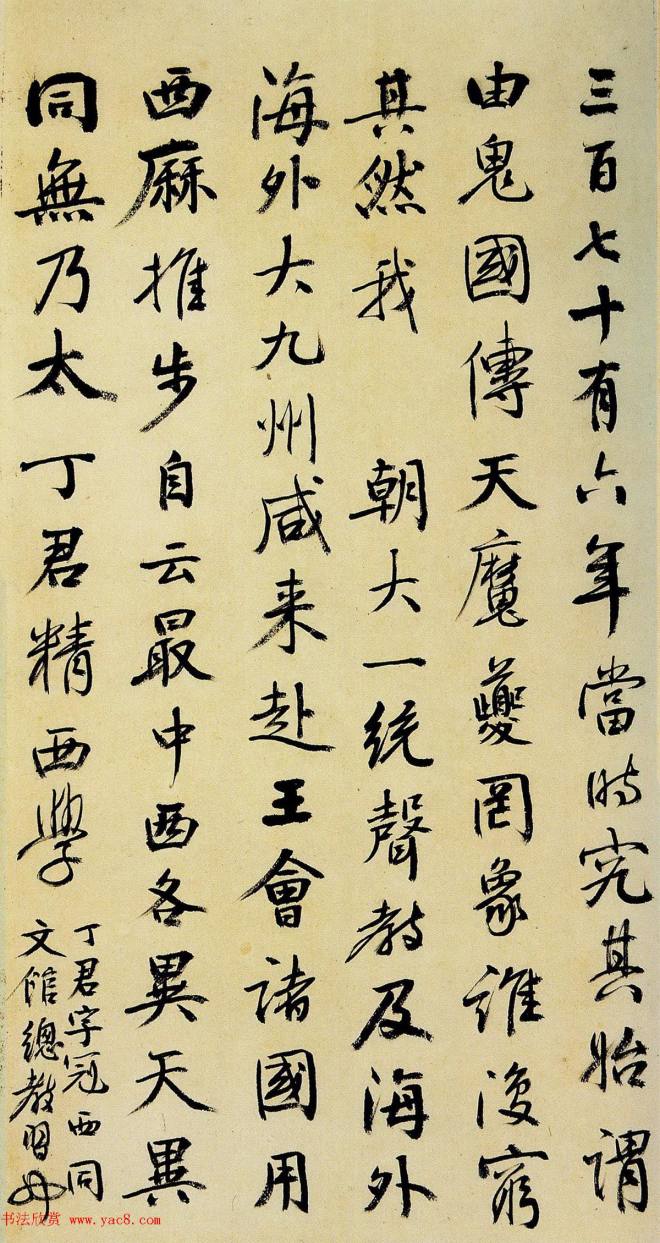 三百七十有六年當時究其始謂
由鬼國傳天魔夔罔象誰復窮
其然我 朝大一統聲教及海外
海外大九州咸来赴王會諸國用
西麻推步自云最中西各異天異
同無乃太 丁君精西學
丁君字冠西同
文館總教習也
书法欣赏 www.yac8.com